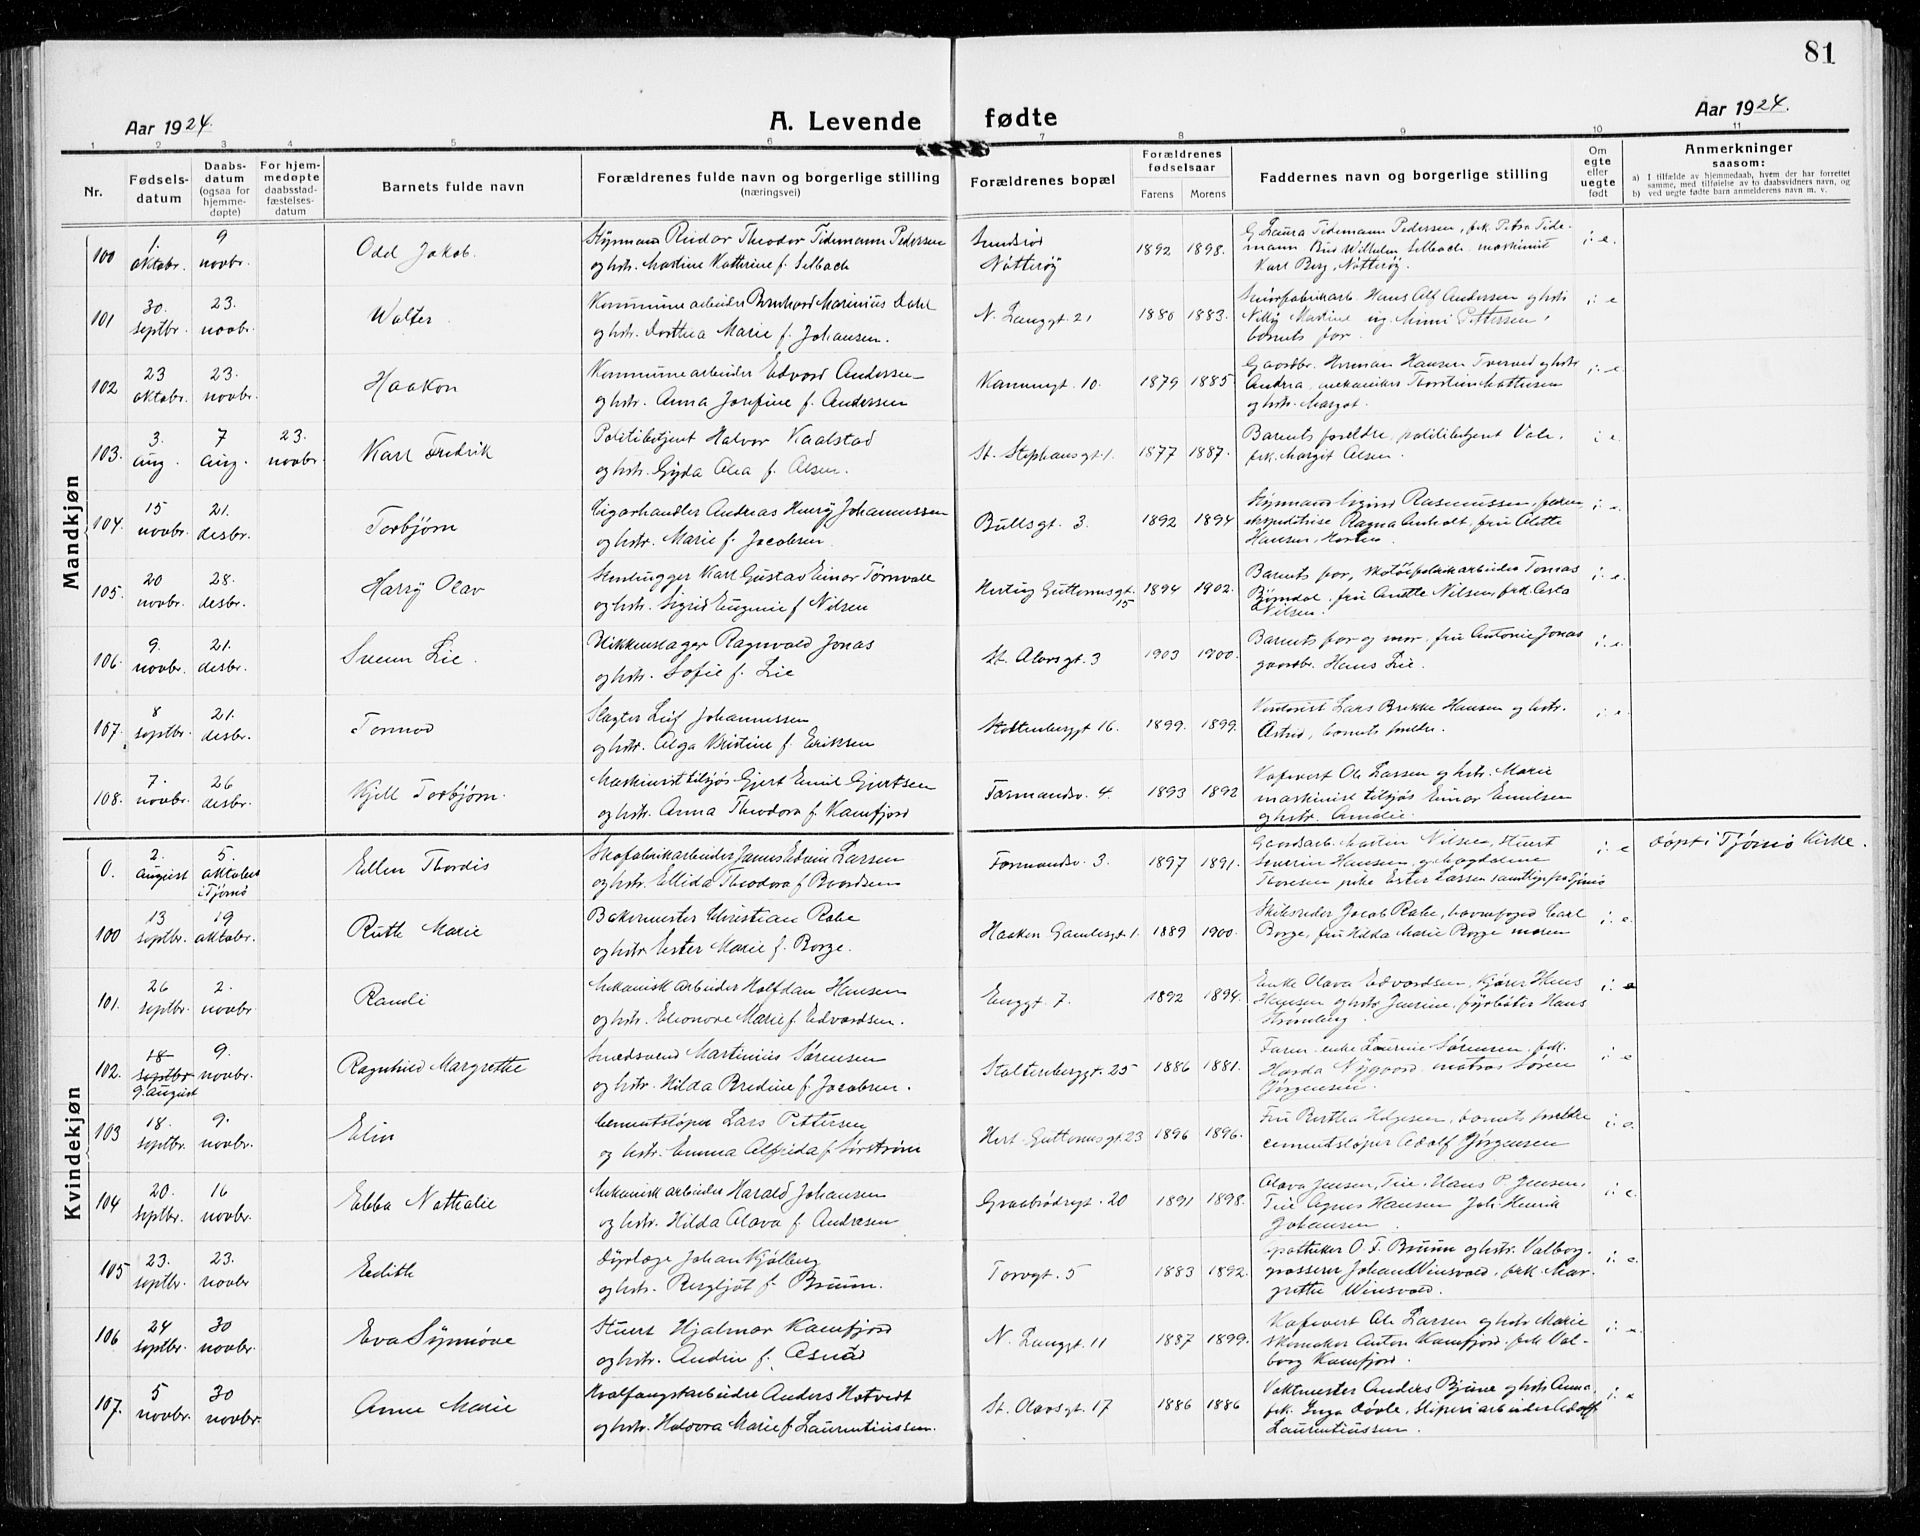 81
Aar 1924. A. Levende fødte Aar 1924.
1 2 3 4 5 6 7 8 9 10 11
Nr.
Fødsels-
datum
Daabs-
datum
(ogsaa for
hjemme-
døpte)
For hjem-
medøpte
daabsstad-
fæstelses-
datum
Barnets fulde navn
Forældrenes fulde navn og borgerlige stilling
(næringsvei)
Forældrenes bopæl
Forældrenes
fødselsaar
Farens Morens
Faddernes navn og borgerlige stilling
Om
egte
eller
uegte
født
Anmerkninger
saasom:
a) I tilfælde av hjemmedaab, hvem der har forrettet
samme, med tilføielse av to daabsvidners navn, og
b) ved uegte fødte barn anmelderens navn m. v.
Mandkjøn
100 1 oktobr. 9 novbr. Odd Jakob.
Styrmand Reidar Theodor Tidemann Pedersen
og hstr. Martine Kathrine f. Selbach
Nøtterøy 1892 1898.
G Laura Tidemann Pedersen, frk. Petra Tide-
mann Bus Wilhelm Selbach, maskinist
Karl Berg, Nøtterøy. i. e.
101 30. septbr. 23. novbr. Walter
Kommunearbeider Bernhard Marinius Dahl
og hstr. Dorthea Marie f. Johansen.
N. Langgt. 21 1880 1883.
Hans Alf Andersen og hstr
Nelly Martine ug. Mimi Pettersen,
barnets far. i. e
102 23 oktobr. 23. novbr. Haakon
Kommunearbeider Edvard Andersen
og hstr. Anna Josefine f. Andersen
Kammegt. 10. 1879 1885.
Gaardbr. Herman Hansen Tverved og hstr
Andrea, mekaniker Thorstein Mathisen
og hstr. Margot. i. e.
103. 3. aug. 7 aug. 23. novbr. Karl Fredrik
Politibetjent Halvor Kaalstad
og hstr. Gyda Alea f. Olsen.
St. Stephansgt. 1. 1877 1887.
Barnets foreldre, politibetjent Vale,
frk. Margit Olsen. i. e.
104. 15 novbr. 21. desbr. Torbjørn
Cigarhandler Andreas Henry Johannessen
og hstr. Marie f. Jacobsen
Bullsgt. 3. 1892 1894
Styrmand Sigurd Rasmussen, faren
ekspeditrise Ragna Anholt, fru Alette
Hansen, Horten i. e.
105. 20 novbr. 28. desbr. Harry Olav
Stenhugger Karl Gustav Einar Tørnvall
og hstr. Sigrid Eugenie f Nilsen
Hertug Guttormsgt. 15 1894 1902.
Barnets far, skotøifabrikarbeider Tomas
Bjørndal, fru Anette Nilsen, frk. Asta
Nilsen. i. e.
106. 9. novbr. 21. desbr. Svenn Lie.
Blikkenslager Ragnvald Jonas
og hstr. Sofie f. Lie
St. Olavsgt. 3 1903 1900.
Barnets far og mor, fru Antonie Jonas
gaardbr. Hans Lie. i. e.
107. 8 septbr. 21. desbr. Tormod
Slagter Leif Johannessen
og hstr. Olga Kristine f. Eriksen
Stoltenberggt 16. 1899. 1899.
Kontorist Lars Brekke Hansen og hstr.
Astrid, barnets foreldre. i. e.
108. 7. novbr. 26 desbr. Kjell Torbjørn.
Maskinist tilsjøs Gjert Emil Gjertsen
og hstr. Anna Theodora f. Kamfjord
Farmandsv. 4. 1893 1892
Kafevert Ole Larsen og hstr. Marie
maskinist tilsjøs Einar Emilsen
og hstr. Amalie.
Kvindekjøn
0. 2. august 5. oktober i Tjømø Ellen Thordis
Skofabrikarbeider James Edvin Larsen
og hstr. Ellida Theodora f Bvordsen
Farmandsv. 3. 1897 1891.
Gaardsarb. Morten Nilsen, Stuert
Severin Hansen, g. Magdalene
Thoresen pike Ester Larsen samtlige fra Tjømø i. e
Døpt i Tjømø Kirke.
100 13 septbr. 19 oktobr. Ruth Marie
Bakermester Christian Rabe
og hstr. Ester Marie f. Borge.
Haakon Gamlesgt. 1. 1889 1900.
Skibsreder Jacob Rabe, havnefoged Carl
Borge, fru Hilda Marie Borge moren i. e.
101. 26 septbr. 2. novbr. Randi
Mekanisk arbeider Halfdan Hansen
og hstr. Eleonore Marie f. Edvardsen.
Enggt. 7. 1892 1894.
Enke Olava Edvardsen, kjører Hans
Hansen og hstr. Jensine, fyrbøter Hans
Strømberg. i. e
102. 18 septbr 9. august 9. novbr. Ragnhild Margrethe
Smedsvend Martinius Sørensen
og hstr. Hilda Bredine f. Jacobsen.
Stoltenberggt. 25 1886 1881.
Faren, enke Laurine Sørensen, frk.
Harda Nygaard, matros Søren
Jørgensen. i. e
103 18. septbr 9. novbr. Elin
Cementstøper Lars Pettersen
og hstr. Emma Alfrida f Sørstrøm
Hert. Guttormsgt. 23 1896 1896.
Fru Berthea Helgesen, barnets foreldre
cementstøper Adolf Jørgensen i. e.
104 20. septbr 16 novbr. Ebba Nathalie
Mekanisk arbeider Harald Johansen
og hstr. Hilda Olava f. Andresen
Graabrødregt. 20 1891 1898.
Olava Jensen, Tie, Hans P. Jensen,
Tie Agnes Hansen Joh. Henrik
Johansen i. e.
105 23. septbr 23. novbr Edith
Dyrlæge Johan Kjølberg
og hstr. Bergljot f. Bruun.
Torvgt. 5 1883 1892.
apotheker O. F. Bruun og hstr. Valborg.
grosserer Johan Winsvold, frk. Mar-
grethe Winsvold. i. e.
106 24 septbr. 30 novbr. Eva Synnøve
Stuert Hjalmar Kamfjord
og hstr. Andrea f. Asnød
N. Langgt. 11 1887 1899.
Kafevert Ole Larsen og hstr Marie
skomaker Anton Kamfjord, frk Val-
borg Kamfjord. i. e.
107. 5 novbr. 30 novbr. Anne Marie
Hvalfangstarbeider Anders Hotvedt
og hstr. Haldora Marie f Laurentiussen.
St. Olavsgt. 17 1886 1886
Vaktmester Anders Bjune og hstr Anna
frk. Inga Døvle, sliperiarbeider Adolf
Laurentiussen. i. e